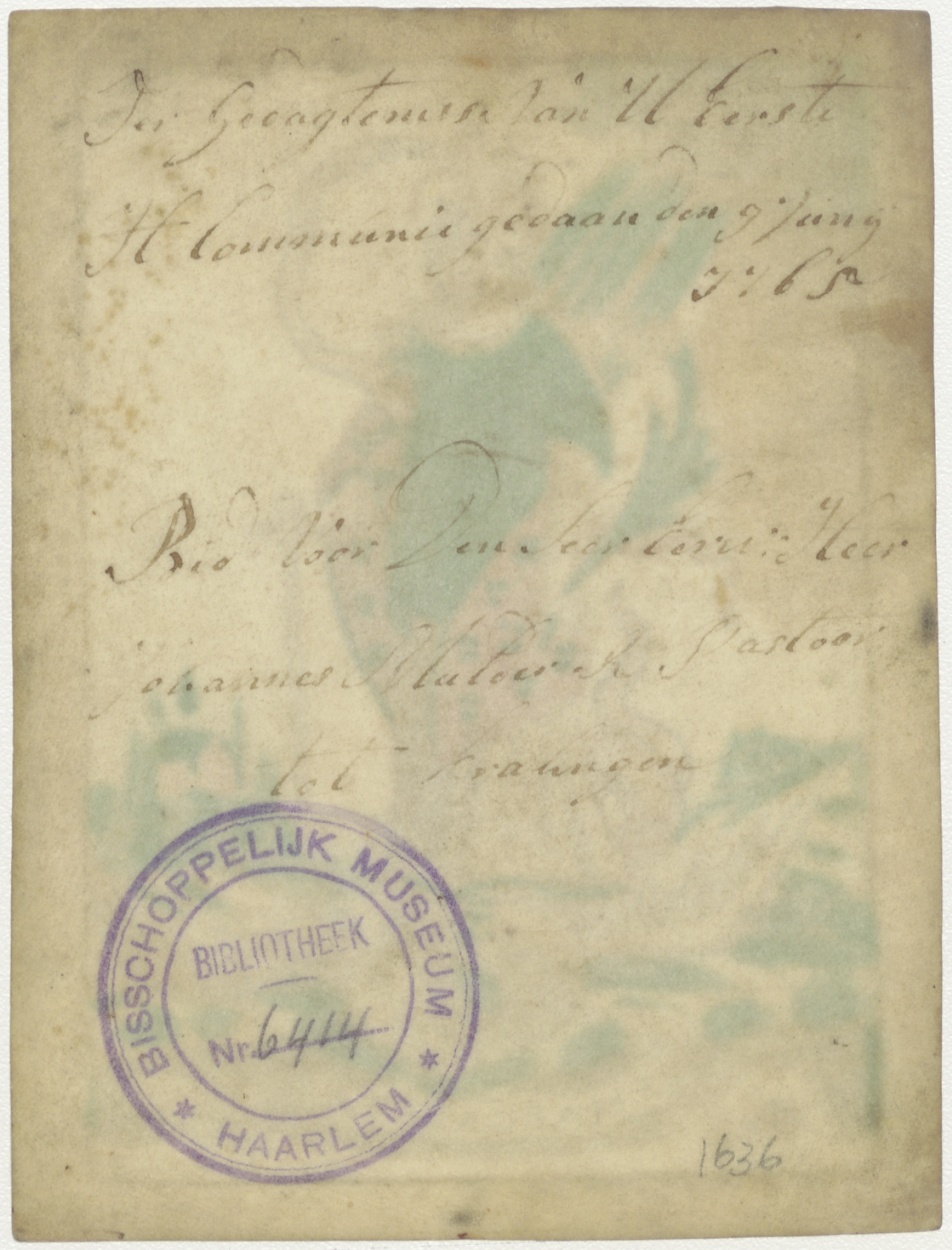 Ter Gedagtenisse Van U Eerste
H Communie gedaan den 9 Juny
1765
Bid Voor Den Seer Eerw: Heer
johannes Mulder R Pastoor
tot kralingen
BISSCHOPPELIJK MUSEUM
BIBLIOTHEEK
Nr. 6414
* HAARLEM *
1636